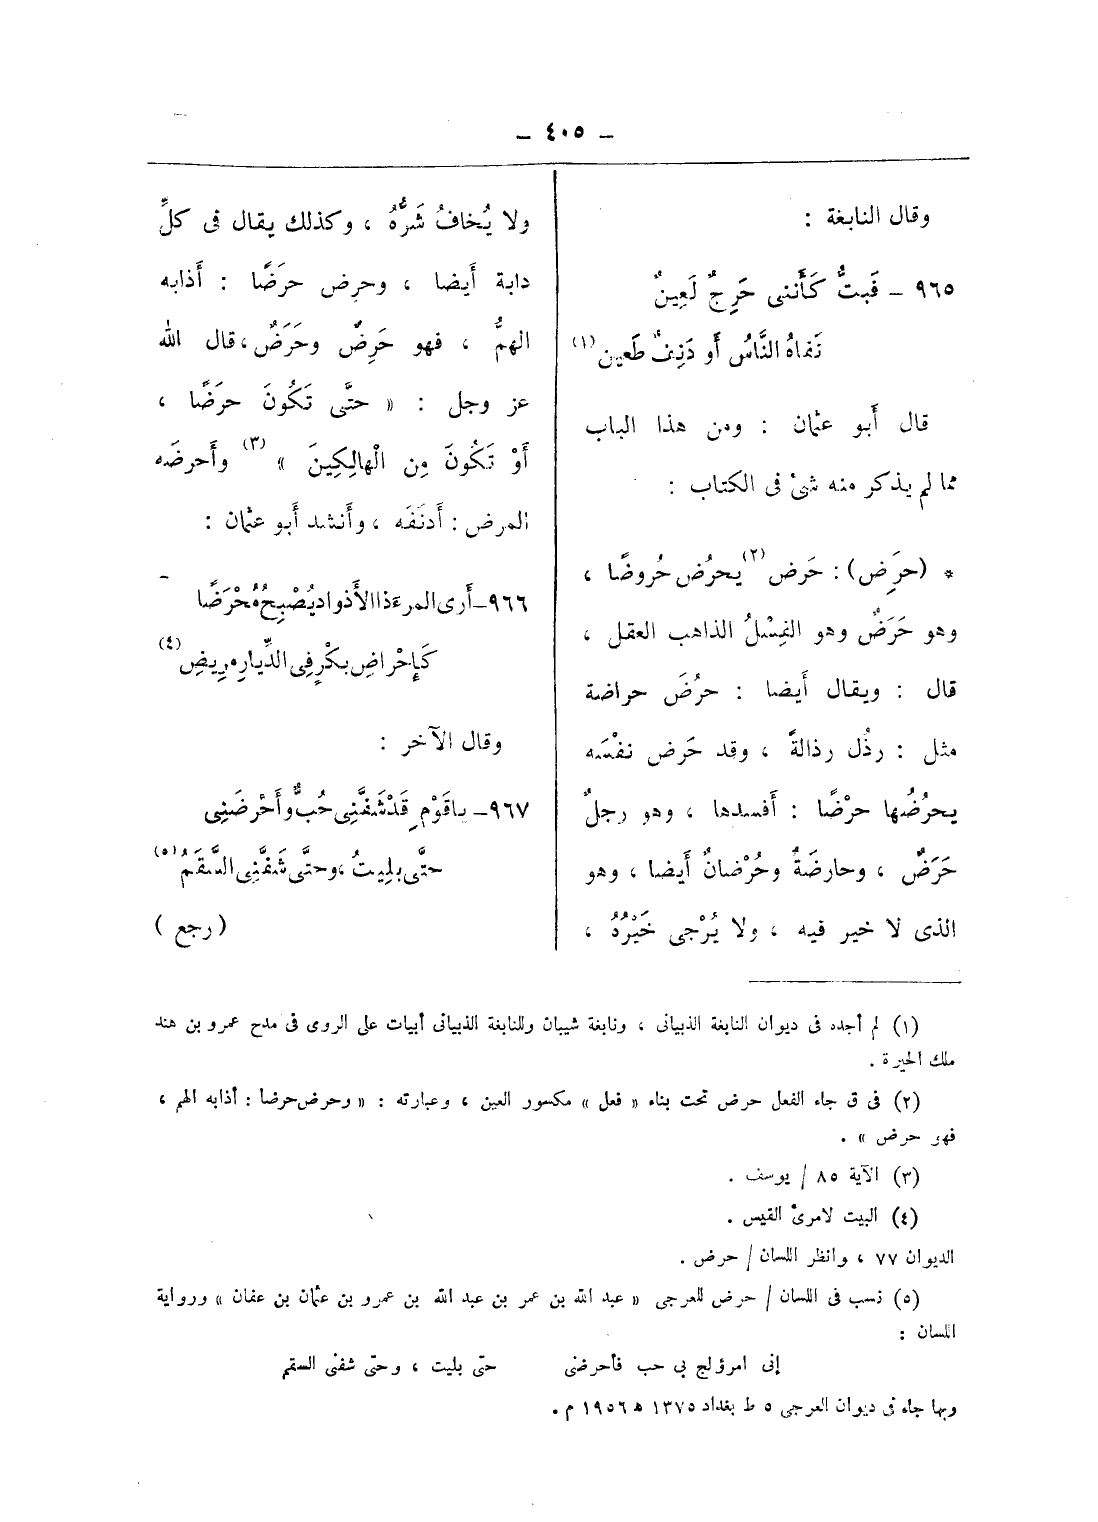 – ٤٠٥ –
وقال النابغة :
٩٦٥ – فَبتُّ كَأَننى حَرِجٌ لَعِينٌ
نَفاهُ النَّاسُ أَو دَنِفٌ طَعين (١)
قال أَبو عثمان : ومن هذا الباب
مما لم يذكر منه شئ فى الكتاب :
* (حرَِض) : حَرض (٢) يحرُض حُروضًا ،
وهو حَرَضٌ وهو الفِسْلُ الذاهب العقل ،
قال : ويقال أَيضا : حرُضَ حراضة
مثل : رذُل رذالةً ، وقد حَرض نفْسَه
يحرُضُها حرْضًا : أَفسدها ، وهو رجلٌ
حَرَضٌ ، وحارضَةٌ وحُرْضانٌ أَيضا ، وهو
الذى لا خير فيه ، ولا يُرْجى خَيْرُهُ ،
ولا يُخافُ شَرُّهُ ، وكذلك يقال فى كلِّ
دابة أَيضا ، وحرِض حرَضًا : أَذابه
الهمُّ ، فهو حَرِضٌ وحَرَضٌ ، قال الله
عز وجل : « حتَّى تَكُونَ حرَضًا ،
أَوْ تَكُونَ مِن الْهالِكِينَ » (٣) وأَحرضَه
المرض : أَدنَفَه ، وأَنشد أَبو عثمان :
٩٦٦– أَرى المرءَ ذا الأَذواد يُصْبِحُ مُحْرَضًا
كَإِحْراضِ بكْرٍ فِى الدِّيار مرِيضِ (٤)
وقال الآخر :
٩٦٧– ياقَوْمِ قَدْ شَفَّنِى حُبٌّ وأَحْرضَنِى
حتَّى بلِيتُ ، وحتَّى شَفَّنِى السَّقَمُ (٥)
( رجع )
(١) لم أجده فى ديوان النابغة الذبيانى ، ونابغة شيبان وللنابغة الذبيانى أبيات على الروى فى مدح عمرو بن هند
ملك الحيرة .
(٢) فى ق جاء الفعل حرض تحت بناء « فعل » مكسور العين ، وعبارته : « وحرض حرضا : أذابه الهم ،
فهو حرض » .
(٣) الآية ٨٥ / يوسف .
(٤) البيت لامرئ القيس .
الديوان ٧٧ ، وانظر اللسان / حرض .
(٥) نسب فى اللسان / حرض للعرجى « عبد الله بن عمر بن عبد الله بن عمرو بن عثمان بن عفان » ورواية
اللسان :
إنى امرؤ لج بى حب فأحرضنى حتى بليت ، وحتى شفنى السقم
وبها جاء فى ديوان العرجى ٥ ط بغداد ١٣٧٥ ه ١٩٥٦ م .